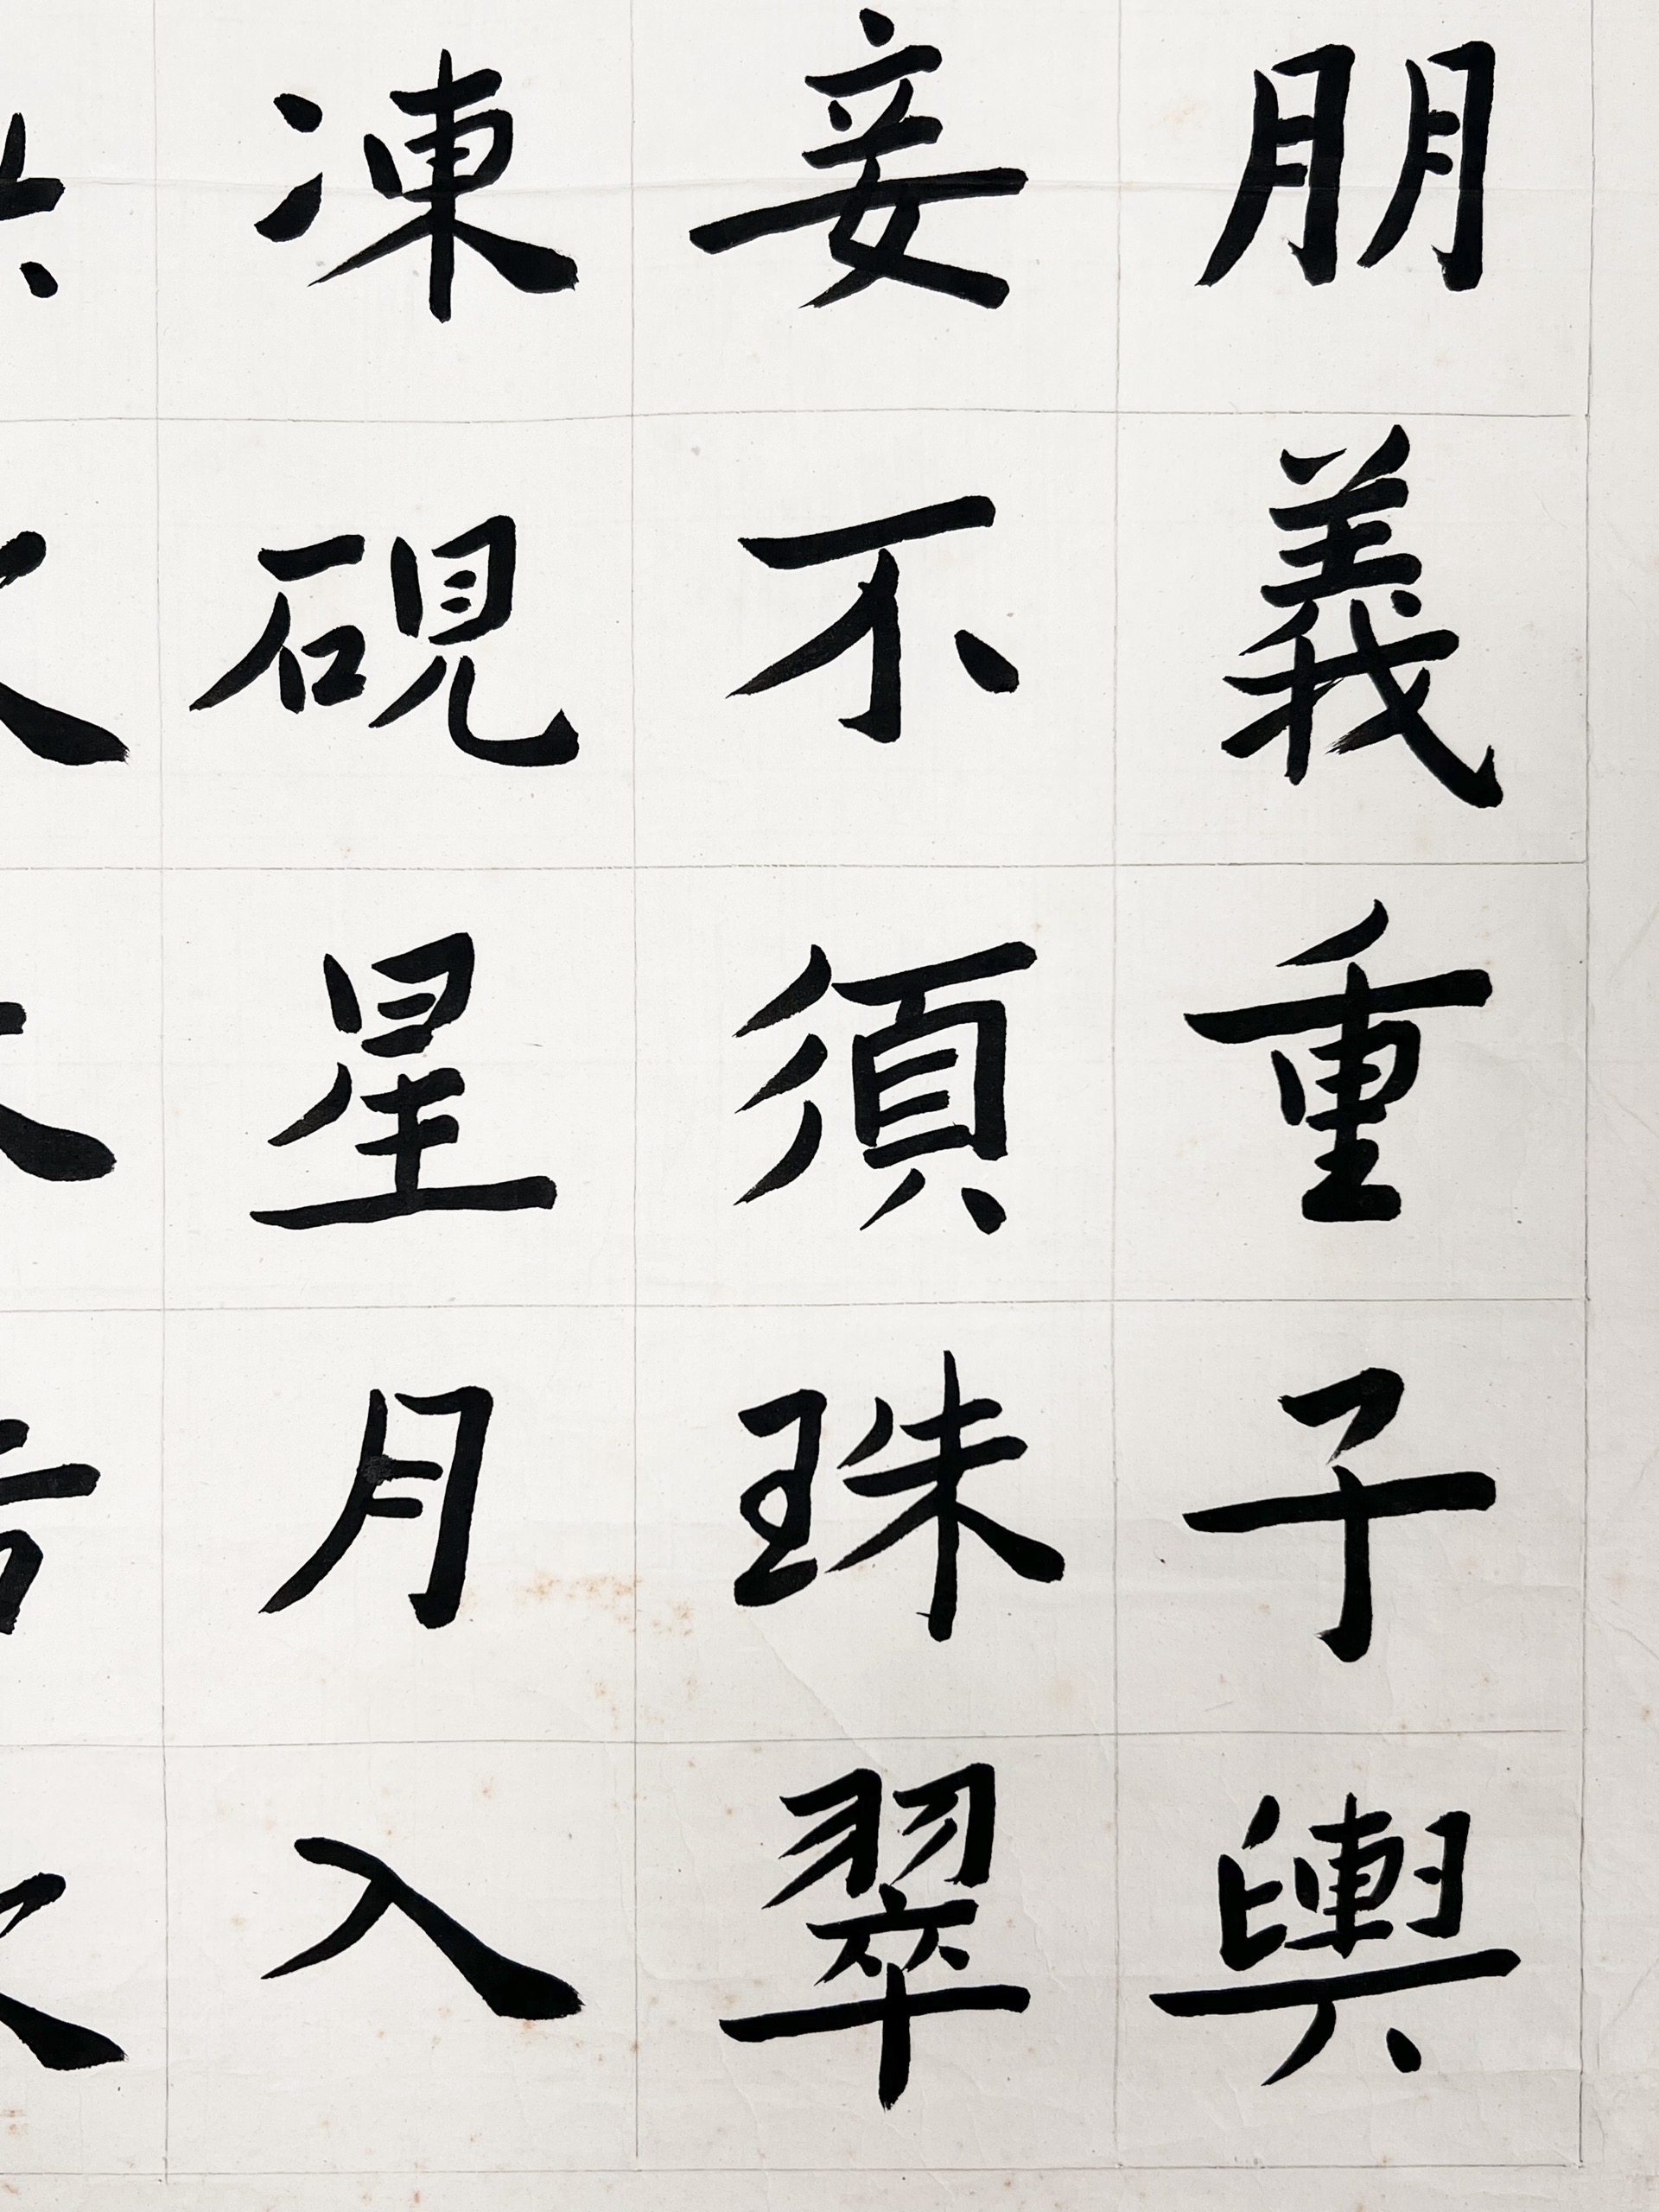 朋義重子輿
妾不須珠翠
凍硯星月入